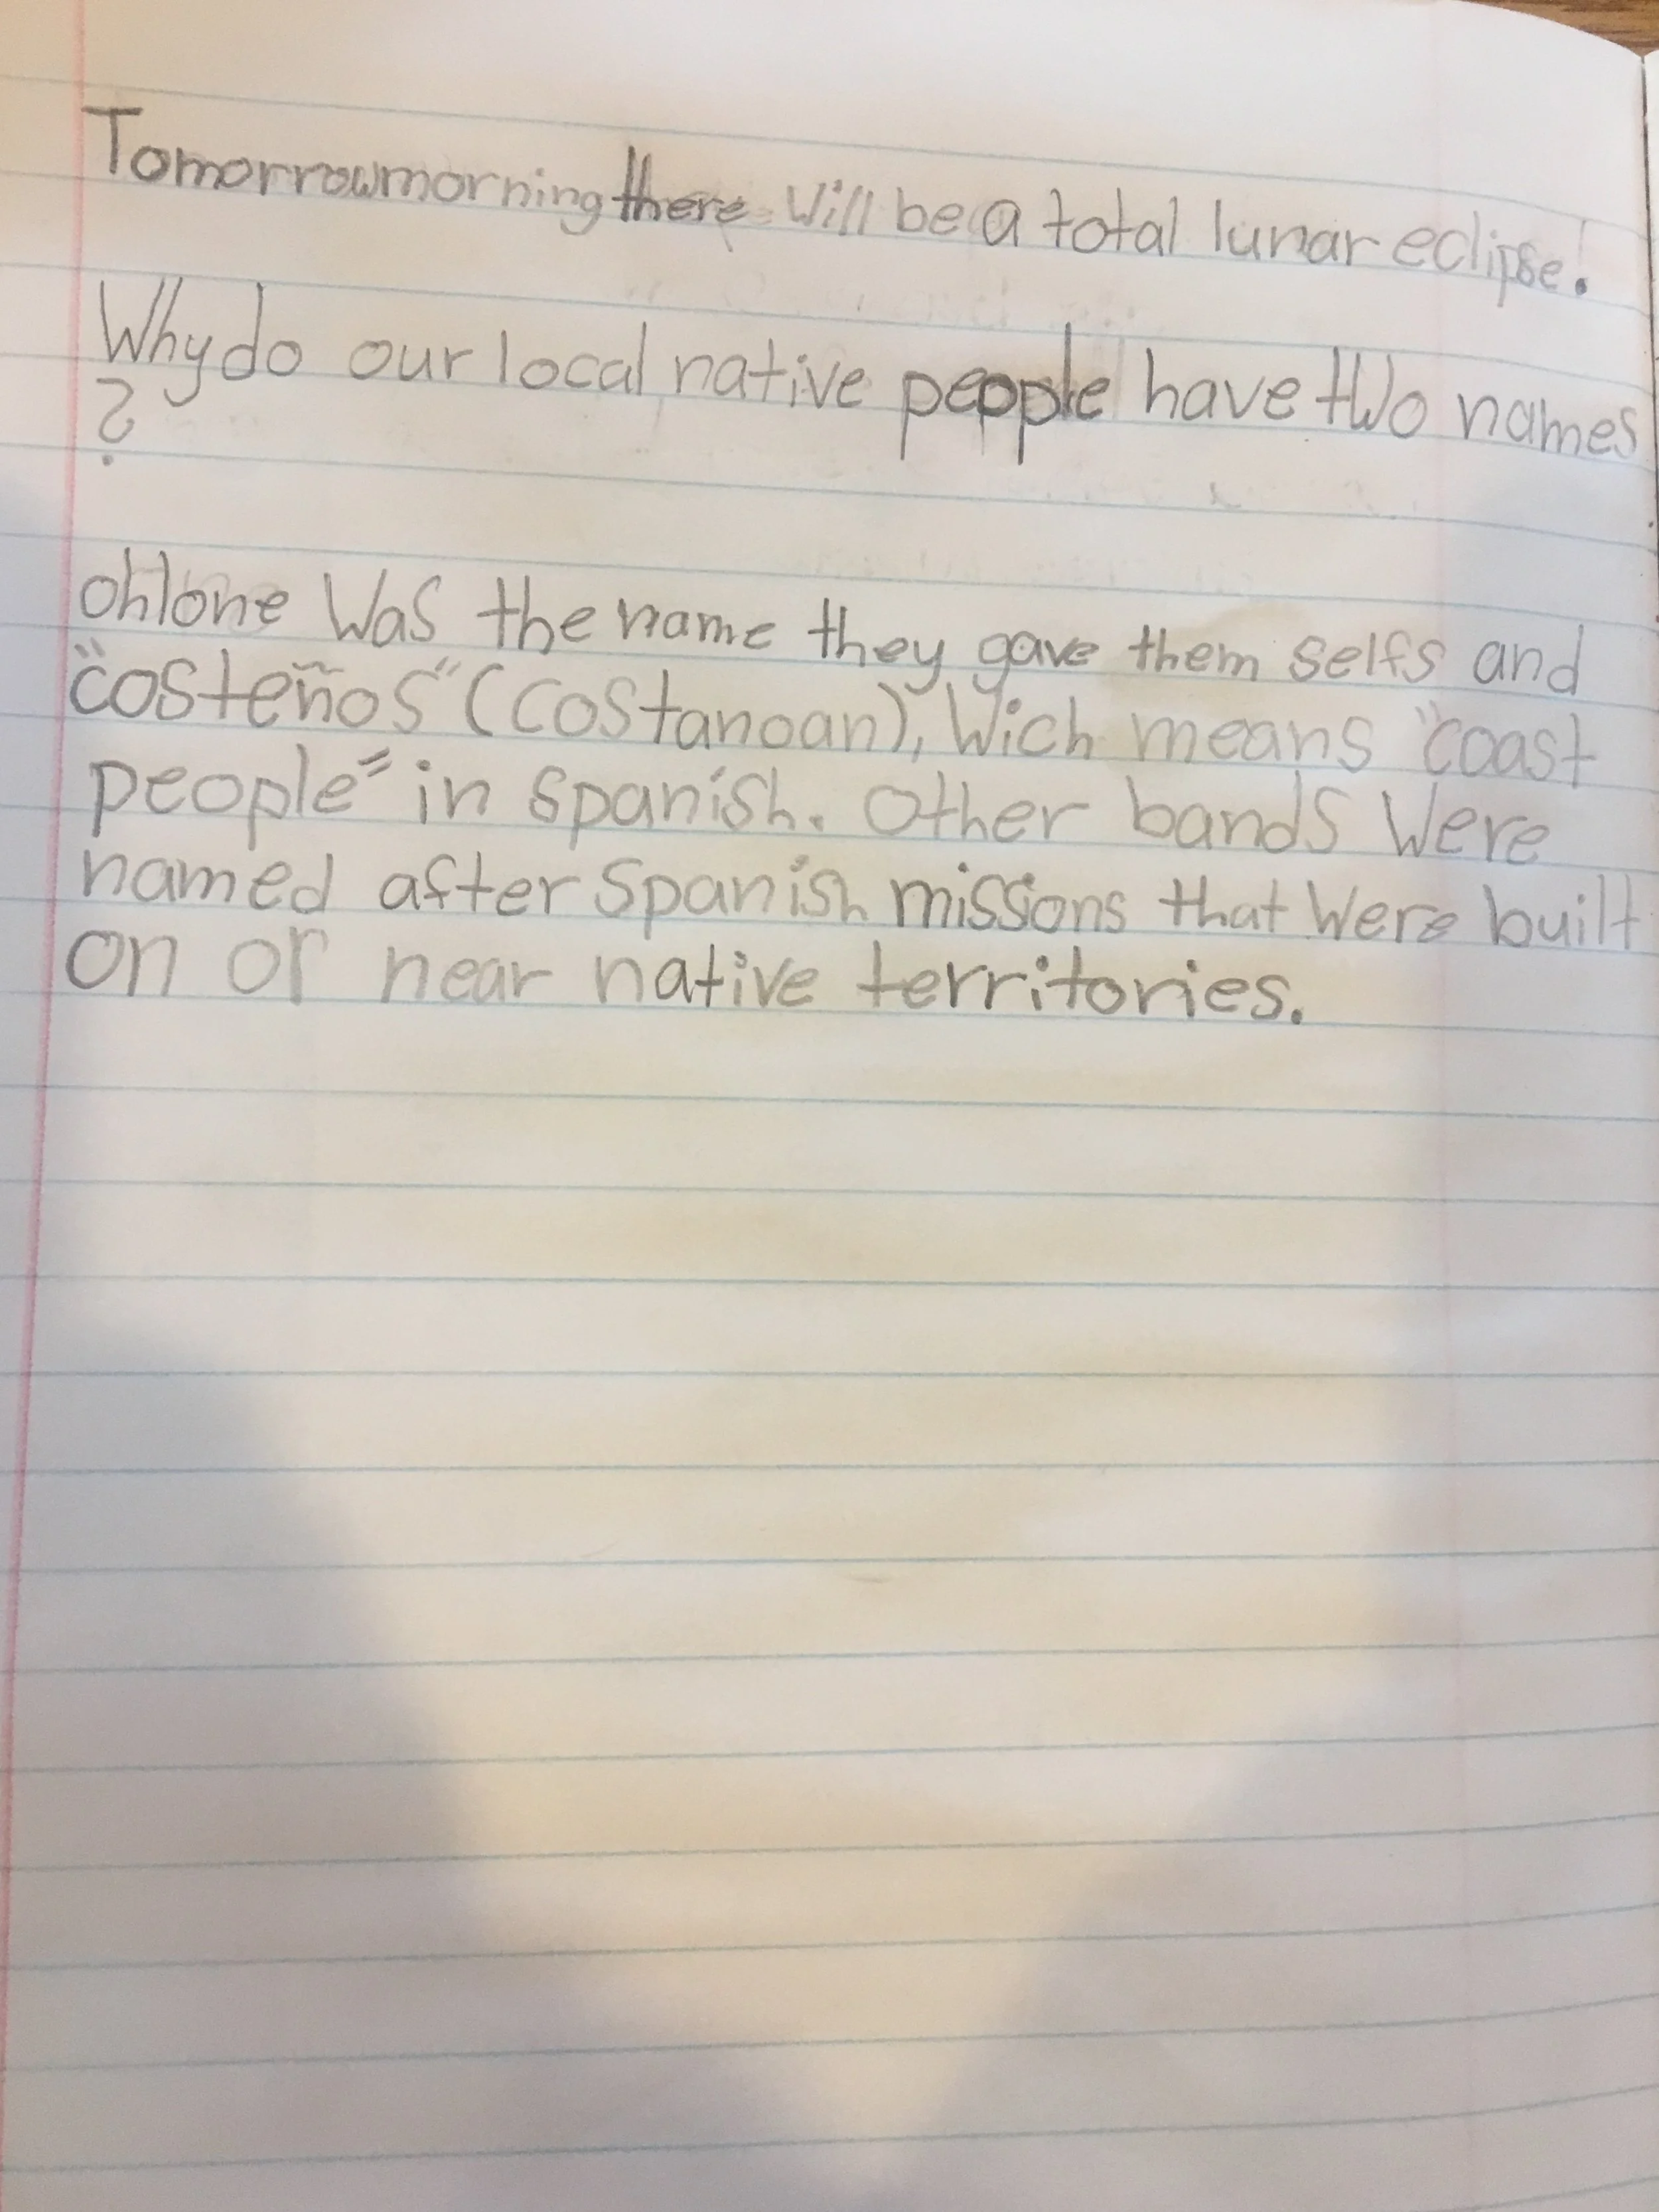 Tomorrow morning there will be a total lunar eclipse!
Why do our local native people have two names
?
ohlone was the name they gave them selfs and
"costeños" (costanoan), wich means "coast
people" in spanish. Other bands were
named after spanish missions that were built
on or near native territories.